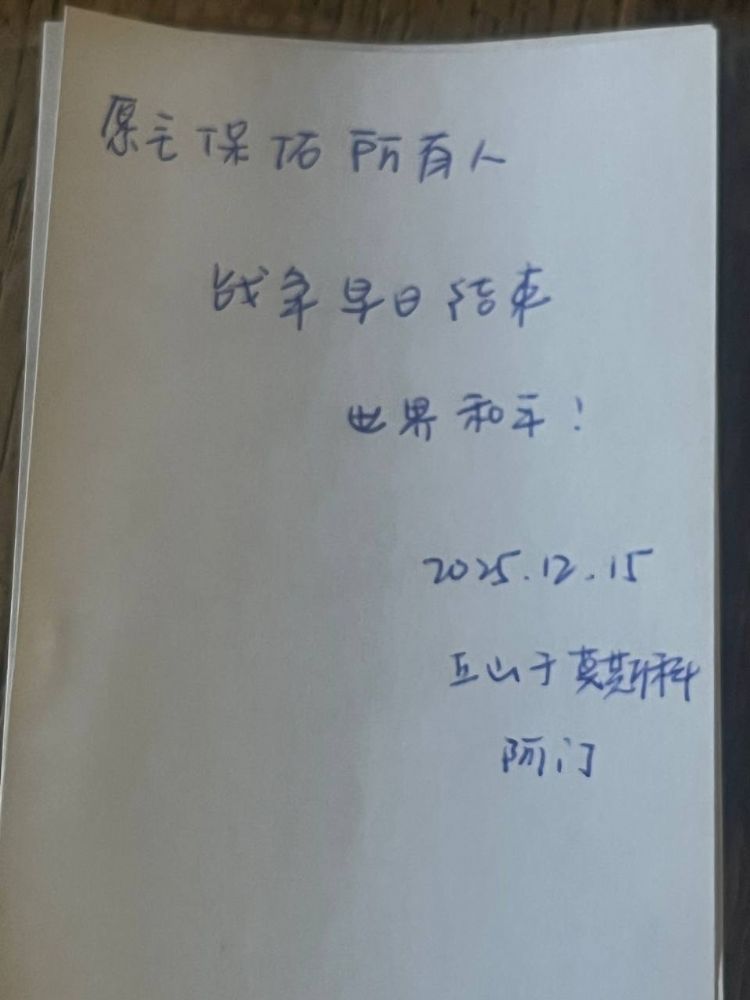 愿主保佑所有人
战争早日结束
世界和平！
2025.12.15
丘山于莫斯科
阿门